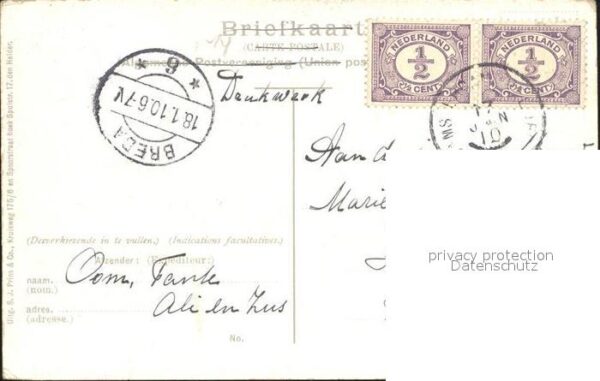 Briefkaart
(CARTE POSTALE)
Algemeene Postvereeniging (Union post
Drukwerk
NEDERLAND
1/2
1/2 CENT
NEDERLAND
1/2
1/2 CENT
BREDA
18.1.10.6-7V
* 6 *
17
JAN
10
Aan
Marie
privacy protection
Datenschutz
(Desverkiezende in te vullen.) (Indications facultatives.)
Afzender: (Expéditeur:)
naam.
(nom.)
Oom, Tante
adres.
(adresse.)
Ali en Zus
No.
Uitg. S. J. Prins & Co., Kruisweg 175/6 en Spoorstraat hoek Spuistr. 17, den Helder.